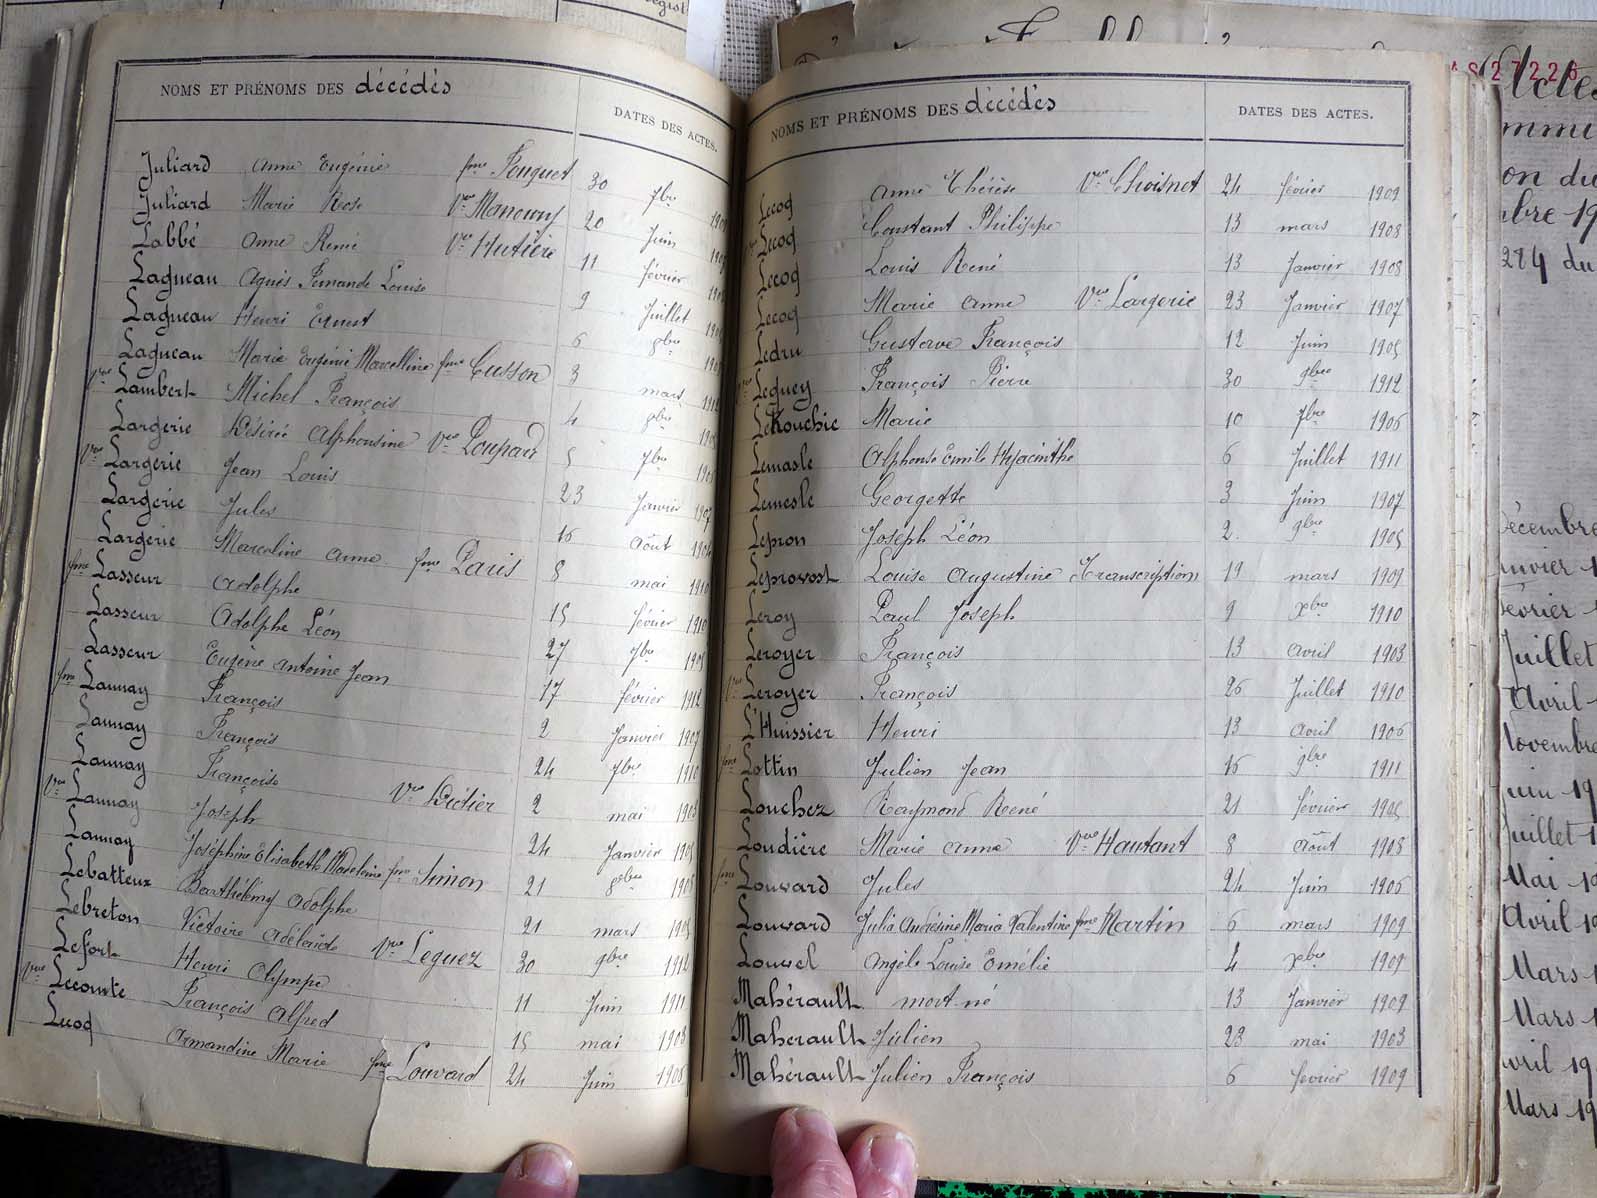 NOMS ET PRÉNOMS DES décédés DATES DES ACTES.
Juliard Anne Eugénie fme Fouquet 30 7bre
Juliard Marie Rose Vve Manoury 20 Juin
Labbé Anne René Vve Hutière 11 février
Lagneau Agnès Fernande Louise 2 Juillet
Lagneau Henri Ernest 6 8bre
Lagneau Marie Eugénie Marcelline fme Cusson 3 mars 1912
Vve Lambert Michel François 4 8bre
Largerie Désirée Alphonsine Vve Poupard 5 7bre
Vve Largerie Jean Louis 23 Janvier 1907
Largerie Jules 16 Août
Largerie Marceline Anne fme Paris 8 mai 1910
fme Lasseur Adolphe 15 février 1910
Lasseur Adolphe Léon 27 7bre
Lasseur Eugène Antoine Jean 17 février 1912
fme Launay François 2 Janvier 1907
Launay François 24 7bre 1910
Launay Françoise Vve Didier 2 mai 1903
Vve Launay Joseph 24 Janvier
Launay Joséphine Elisabeth Madeleine fme Simon 21 8bre 1908
Lebatteux Barthélemy Adolphe 21 mars
Lebreton Victoire Adélaïde Vve Leguez 30 9bre 1912
Lefort Henri Olympe 11 Juin 1911
Vve Lecomte François Alfred 15 mai 1903
Lecoq Armandine Marie fme Louvard 24 Juin 1908
NOMS ET PRÉNOMS DES décédés DATES DES ACTES.
Lecoq Anne Thérèse Vve Choisnet 24 février 1909
Lecoq Constant Philippe 13 mars 1908
Lecoq Louis René 13 Janvier 1908
Lecoq Marie Anne Vve Largerie 23 Janvier 1907
Ledru Gustave François 12 Juin 1905
Vve Leguey François Pierre 30 9bre 1912
LeKouchic Marie 10 7bre 1906
Lemasle Alphonse Emile Hyacinthe 6 Juillet 1911
Lemesle Georgette 3 Juin 1907
Lepron Joseph Léon 2 9bre 1905
Leprovost Louise Augustine Transcription 19 mars 1909
Leroy Paul Joseph 9 Xbre 1910
Leroyer François 13 avril 1903
Vve Leroyer François 26 Juillet 1910
L'Huissier Henri 13 avril 1906
fme Lottin Julien Jean 16 9bre 1911
Louchez Raymond René 21 février 1905
Loudière Marie Anne Vve Hautant 8 août 1908
fme Louvard Jules 24 Juin 1906
Louvard Julia Andrésine Maria Valentine fme Martin 6 mars 1909
Louvel Angèle Louise Emélie 4 Xbre 1909
Mahérault mort né 13 Janvier 1909
Mahérault Julien 23 mai 1903
Mahérault Julien François 6 février 1909
27226
Actes
on du
274 du
Juillet
Avril
Novembre
Juin 19
Juillet 1
Mai 19
Avril 19
Mars 1
Mars 1
Mars 19